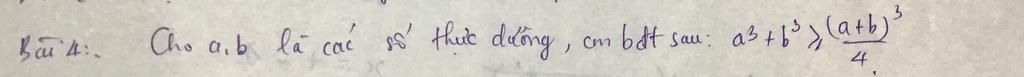 Bài 4:. Cho a, b là các số thực dương, cm bđt sau: a³ + b³ ⩾ (a+b)³/4.